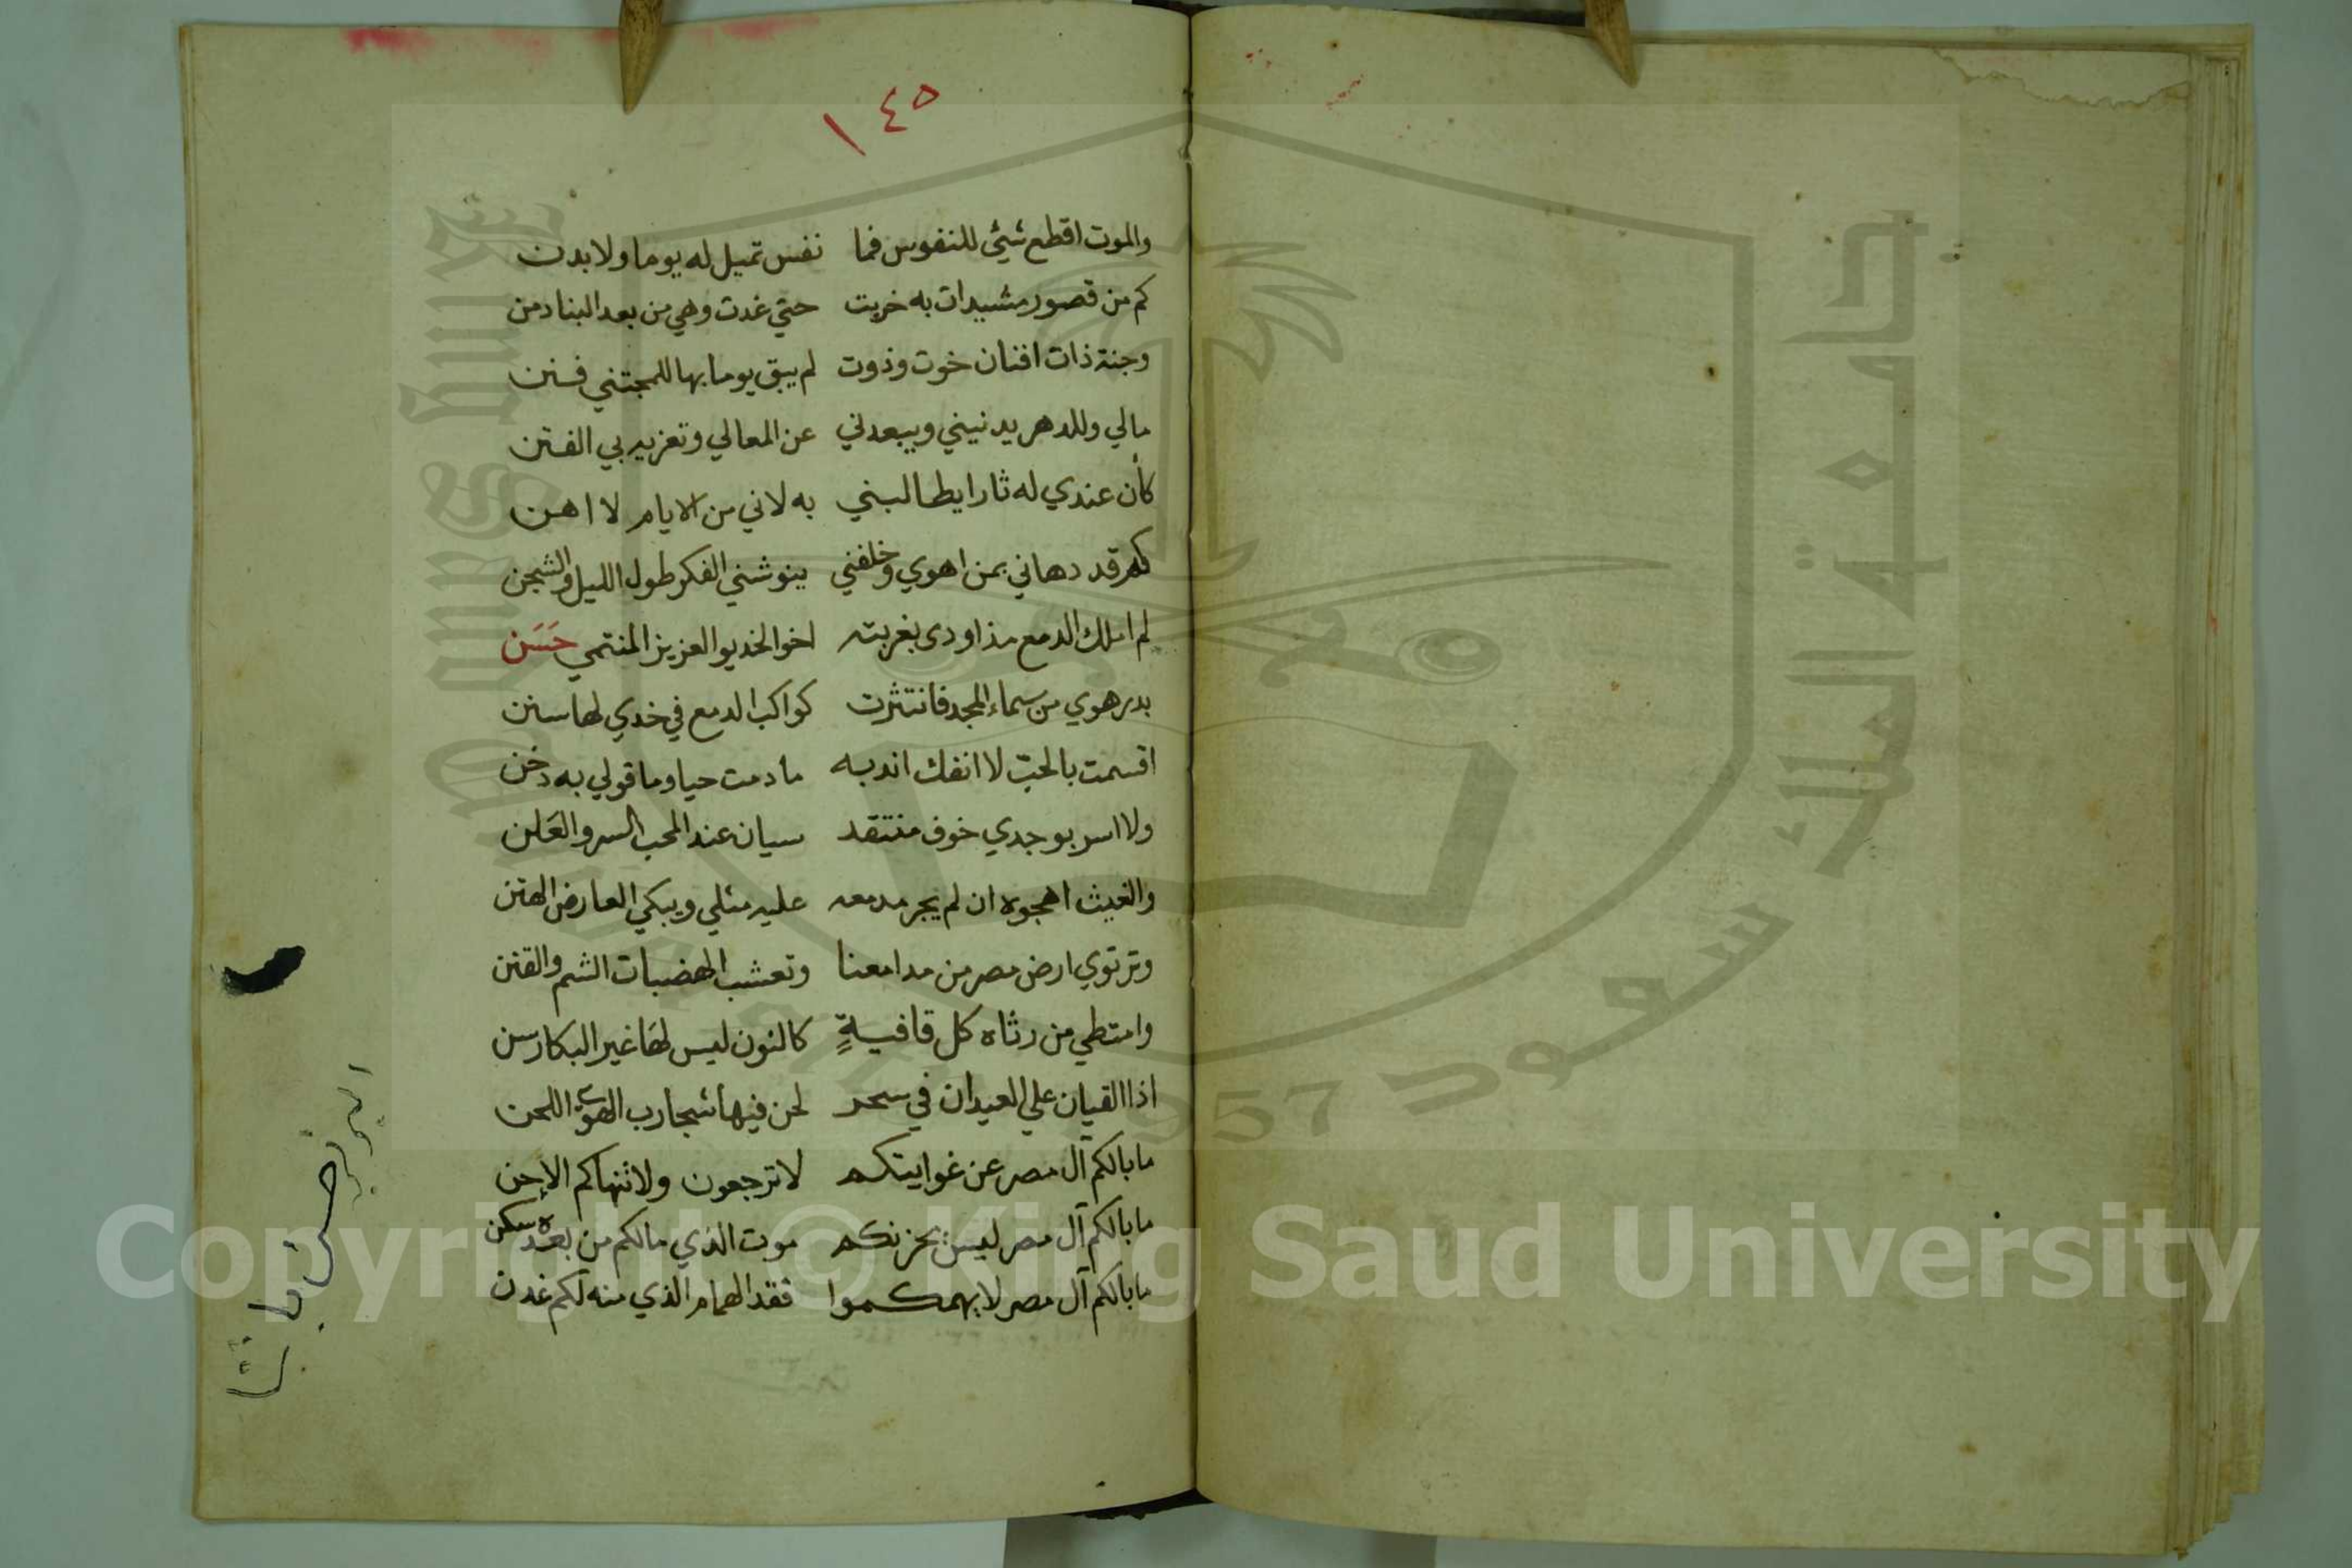 ١٤٥
والموت اقطع شيئ للنفوس فما نفس تميل له يوما ولا بدن
كم من قصور مشيدات به خربت حتي غدت وهي من بعد البنا دمن
وجنة ذات افنان خوت وذوت لم يبق يوما بها للمجتني فنن
مالي وللدهر يدنيني ويبعدني عن المعالي وتعزيه بي الفتن
كأن عندي له ثارا يطالبني به لاني من الايام لا اهن
كم قد دهاني بمن اهوي وخلفني ينوشني الفكر طول الليل والشجن
لم املك الدمع مذ اودى بغربته اخو الخديو العزيز المنتمي حَسَن
بدر هوي من سماء المجد فانتثرت كواكب الدمع في خدي لها سنن
اقسمت بالحب لا انفك اندبه ما دمت حيا وما قولي به دخن
ولا اسر بوجدي خوف منتقد سيان عند المحب السر والعَلن
والغيث اهجوه ان لم يجر مدمعه عليه مثلي ويبكي العارض الهتن
وترتوي ارض مصر من مدامعنا وتعشب الهضبات الشم والقنن
وامتطي من رثاه كل قافيةٍ كالنون ليس لها غير البكا رسن
اذا القيان علي العيدان في سحر لحن فيها شجا رب الهوى اللحن
ما بالكم آل مصر عن غوايتكم لا ترجعون ولا ثنهاكم الإحن
ما بالكم آل مصر ليس يحزنكم موت الذي مالكم من بعده سكن
ما بالكم آل مصر لا يهمكموا فقد الهمام الذي منه لكم غدن
البرنس حسن باشا
جامعة الملك سعود
King Saud University
1957
Copyright © King Saud University